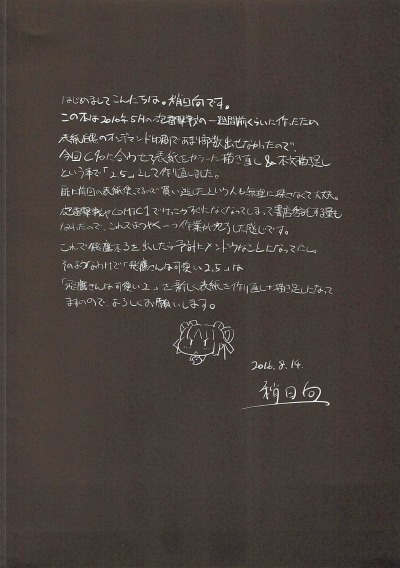 はじめましてこんにちは。稍日向です。
この本は2016年5月の砲雷撃戦の一週間前くらいに作ったため
表紙黒のオンデマンド印刷であまり部数出せなかったので、
今回C90に合わせて表紙をカラーに描き直し&本文描き足し
という事で「2.5」として作り直しました。
前回の表紙使ってるので買い逃したという人も無理に探さなくて大丈夫。
砲雷撃戦やCOMIC1で
なかったので、これでようやく一つ作業が終了した感じです。
これで飛鷹本3を出したら余計にメンドウなことになってたし。
そのようなわけで「飛鷹さんな可愛い2.5」は
「飛鷹さんな可愛い2」を新しく表紙を作り直し+描き足しになって
ますので、よろしくお願いします。
2016.8.14.
稍日向